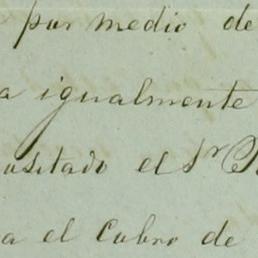 por medio de
a igualmente
ositado el Sr
a el Cobro de